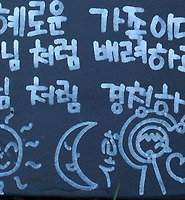 혜로운 가족이다
님 처럼 배려하
님 처럼 경청하
사랑